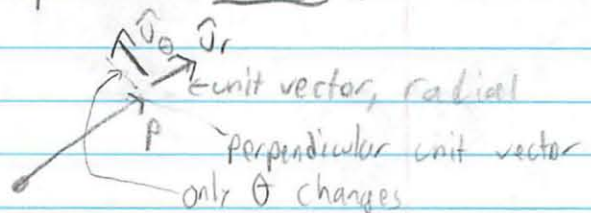 Û_θ Û_r
←unit vector, radial
P perpendicular unit vector
only θ changes